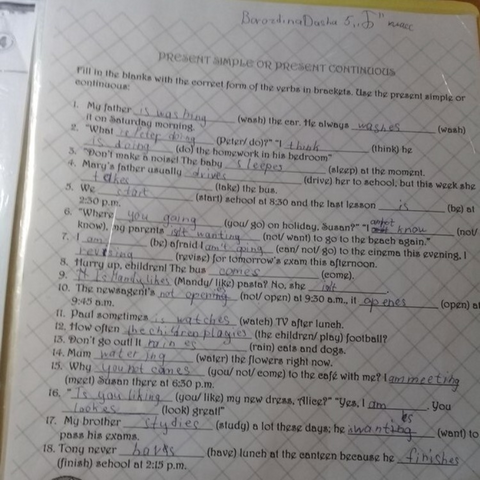 Borozdina Dasha 5 "J" класс
PRESENT SIMPLE OR PRESENT CONTINUOUS
Fill in the blanks with the correct form of the verbs in brackets. Use the present simple or
continuous:
1. My father is washing (wash) the car. He always washes (wash)
it on Saturday morning.
2. "What doing (Peter/ do)?" "I think (think) he
is doing (do) the homework in his bedroom"
3. "Don't make a noise! The baby sleepes (sleep) at the moment.
4. Mary's father usually drives (drive) her to school, but this week she
takes (take) the bus.
5. We start (start) school at 8:30 and the last lesson is (be) at
2:30 p.m.
6. "Where you going (you/ go) on holiday, Susan?" "I know (not/
know), my parents isn't wanting (not/ want) to go to the beach again."
7. I am (be) afraid I am't going (can/ not/ go) to the cinema this evening, I
revising (revise) for tomorrow's exam this afternoon.
8. Hurry up, children! The bus comes (come).
9. It Is Mandy likes (Mandy/ like) pasta? No, she isn't.
10. The newsagent's not opening (not/ open) at 9:30 a.m., it openes (open) at
9:45 a.m.
11. Paul sometimes is watches (watch) TV after lunch.
12. How often the children playies (the children/ play) football?
13. Don't go out! It raines (rain) cats and dogs.
14. Mum watering (water) the flowers right now.
15. Why you not comes (you/ not/ come) to the café with me? I am meeting
(meet) Susan there at 6:30 p.m.
16. "Is you liking (you/ like) my new dress, Alice?" "Yes, I am. You
lookes (look) great!"
17. My brother studies (study) a lot these days; he wanting es (want) to
pass his exams.
18. Tony never haves (have) lunch at the canteen because he finishes
(finish) school at 2:15 p.m.